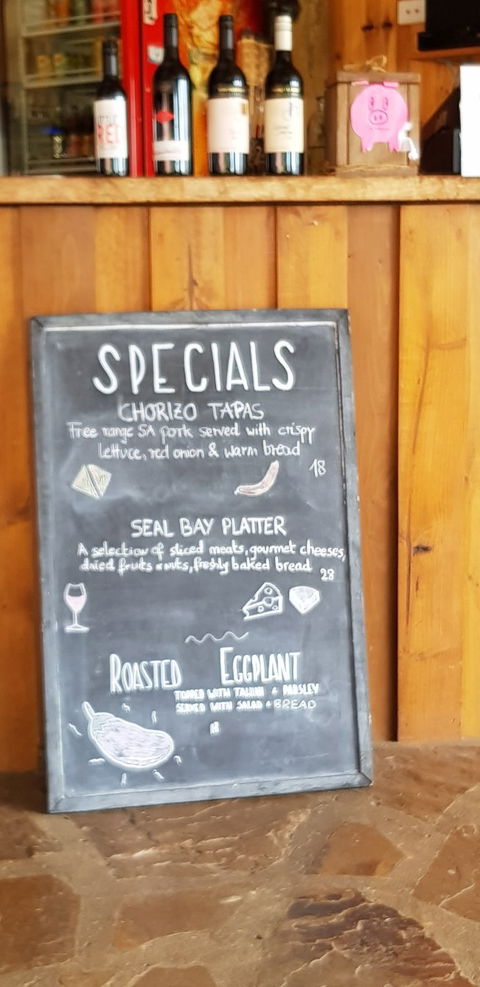 LITTLE
RED
SPECIALS
CHORIZO TAPAS
Free range SA pork served with crispy
lettuce, red onion & warm bread
18
SEAL BAY PLATTER
A selection of sliced meats, gourmet cheeses,
dried fruits & nuts, freshly baked bread
28
ROASTED EGGPLANT
TOPPED WITH TAHINI + PARSLEY
SERVED WITH SALAD + BREAD
18